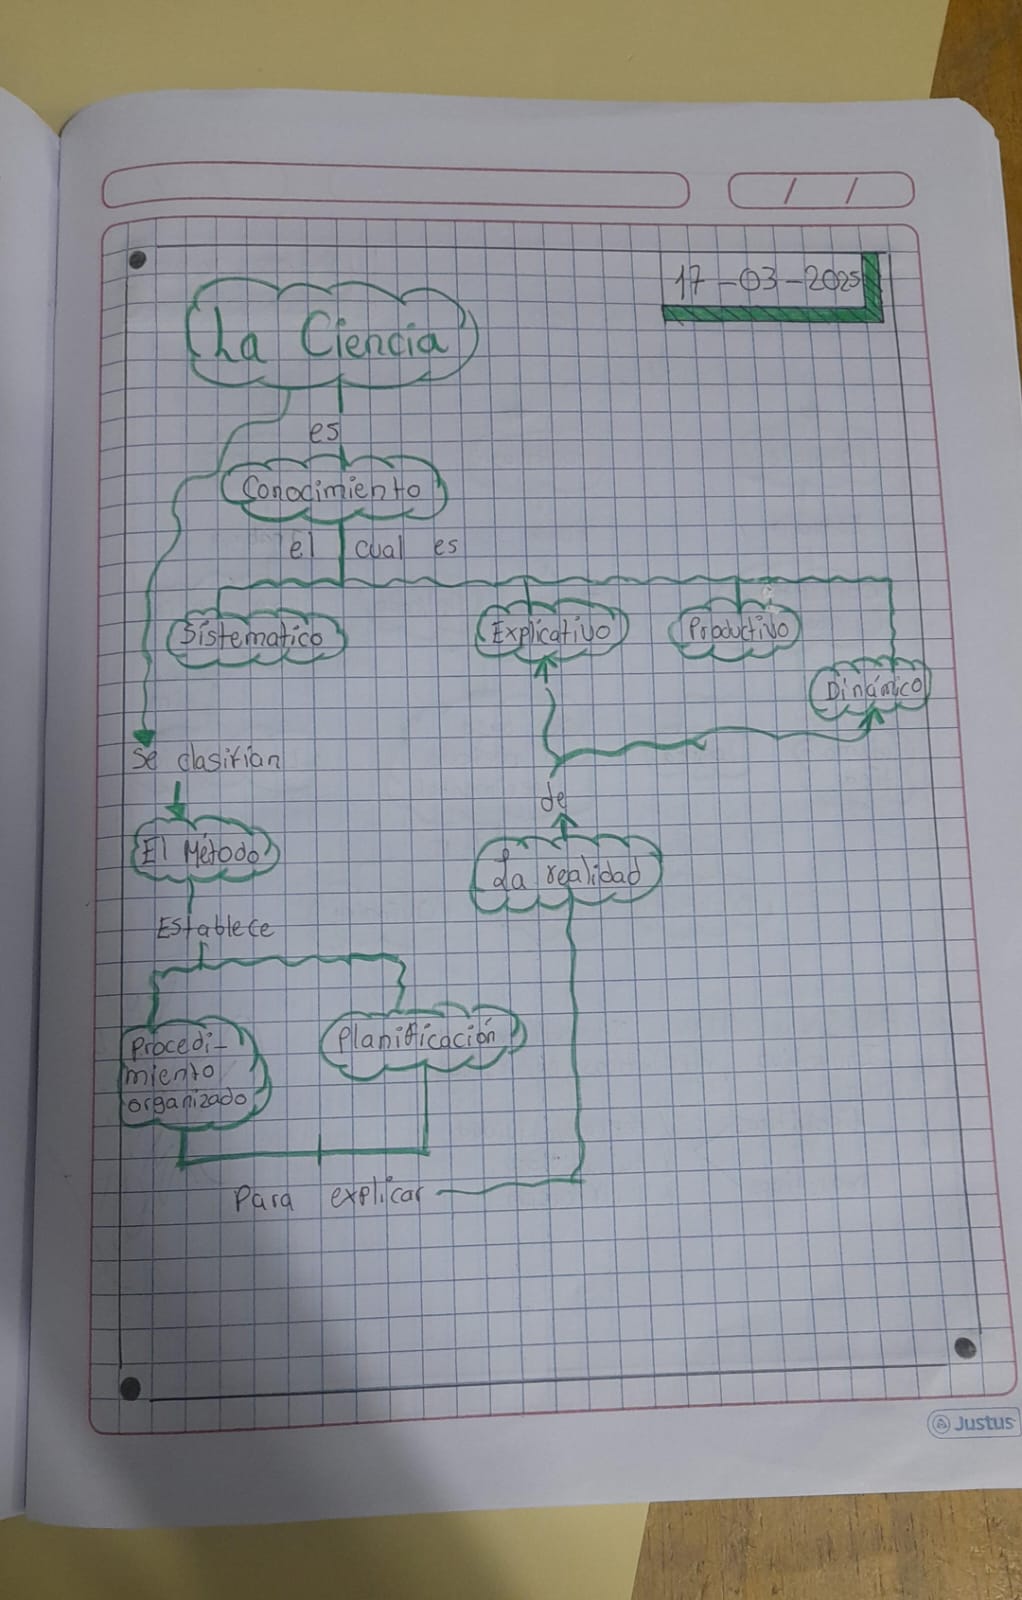 17-03-2025
La Ciencia
es
Conocimiento
el cual es
Sistematico
Explicativo
Productivo
Dinámico
se clasifian
de
El Método
La realidad
Establece
Procedi-
miento
organizado
Planificación
Para explicar
Justus